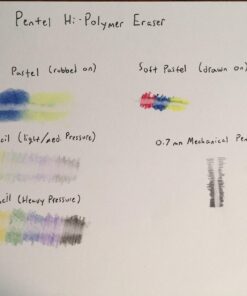 Pentel Hi-Polymer Eraser
Pastel (rubbed on)
Soft Pastel (drawn on)
cil (light/med. Pressure)
0.7 mm Mechanical Pen
cil (Heavy Pressure)